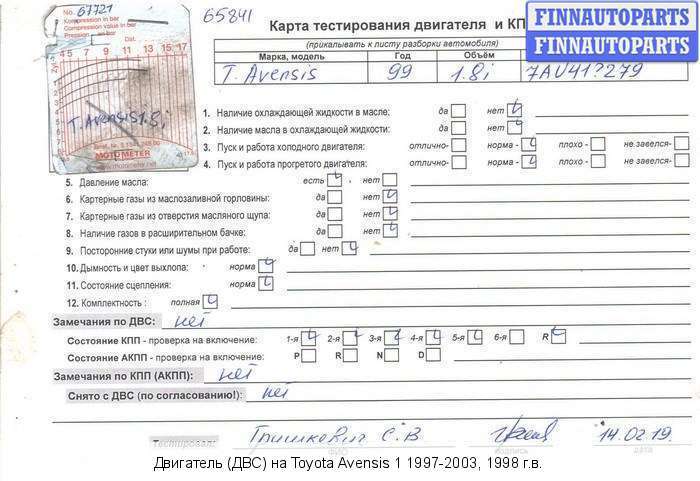 No. 67721
Kompression in bar
Compression value in bar
Pression en bar
Dat.
3 5 7 9 11 13 15 17
T. Avensis 1.8i
MOTOMETER
www.motometer.net
65841
FINNAUTOPARTS
FINNAUTOPARTS
Карта тестирования двигателя и КП
(прикалывать к листу разборки автомобиля)
Марка, модель Год Объём
T. Avensis 99 1.8i 7AU41?279
1. Наличие охлаждающей жидкости в масле: да нет
2. Наличие масла в охлаждающей жидкости: да нет
3. Пуск и работа холодного двигателя: отлично- норма - плохо - не завелся-
4. Пуск и работа прогретого двигателя: отлично- норма - плохо - не завелся-
5. Давление масла: есть нет
6. Картерные газы из маслозаливной горловины: да нет
7. Картерные газы из отверстия масляного щупа: да нет
8. Наличие газов в расширительном бачке: да нет
9. Посторонние стуки или шумы при работе: да нет
10. Дымность и цвет выхлопа: норма
11. Состояние сцепления: норма
12. Комплектность : полная
Замечания по ДВС: нет
Состояние КПП - проверка на включение: 1-я 2-я 3-я 4-я 5-я 6-я R
Состояние АКПП - проверка на включение: P R N D
Замечания по КПП (АКПП): нет
Снято с ДВС (по согласованию!): нет
Тестировал: Гришкевич С.В 14.02.19.
ФИО подпись дата
Двигатель (ДВС) на Toyota Avensis 1 1997-2003, 1998 г.в.